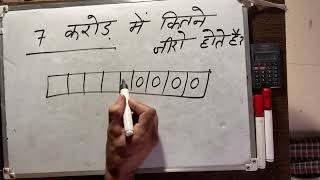 7 करोड़ में कितने
जीरो होते है?
0 0 0 0